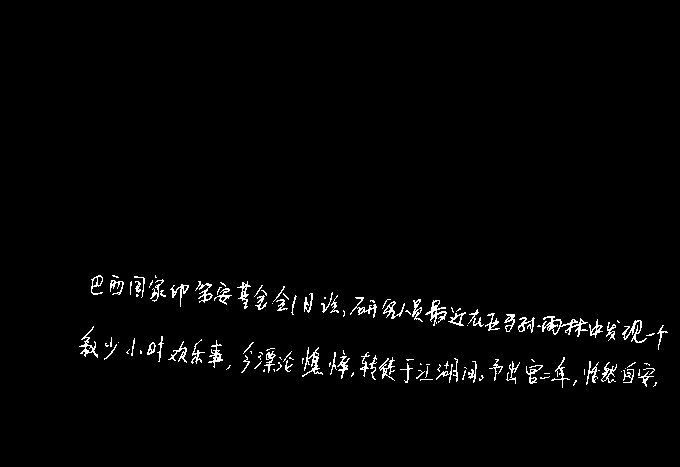 巴西国家印第安基金会1日说,研究人员最近在亚马孙雨林中发现一个
叙少小时欢乐事,今漂沦憔悴,转徙于江湖间。予出官二年,恬然自安,